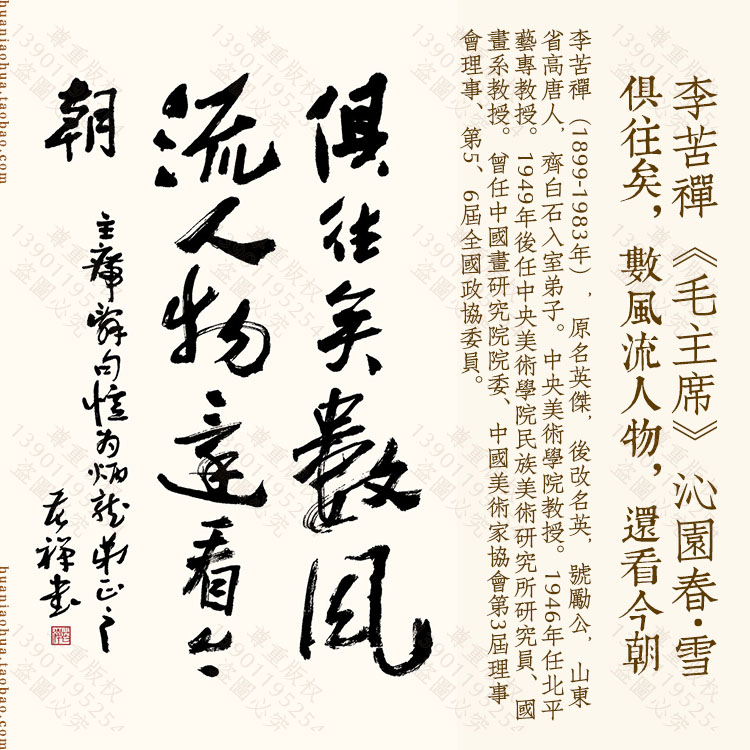 李苦禪《毛主席》沁園春·雪
俱往矣，數風流人物，還看今朝
李苦禪（1899-1983年），原名英傑，後改名英，號勵公，山東
省高唐人，齊白石入室弟子。中央美術學院教授。1946年任北平
藝專教授。1949年後任中央美術學院民族美術研究所研究員、國
畫系教授。曾任中國畫研究院院委、中國美術家協會第3屆理事
會理事、第5、6屆全國政協委員。
俱往矣數風
流人物還看今
朝
主席辭句憶為炳龍弟正之
苦禪書
huaniaohua.taobao.com
huaniaohua.taobao.com
尊重版权
13901195254
盗圖必究